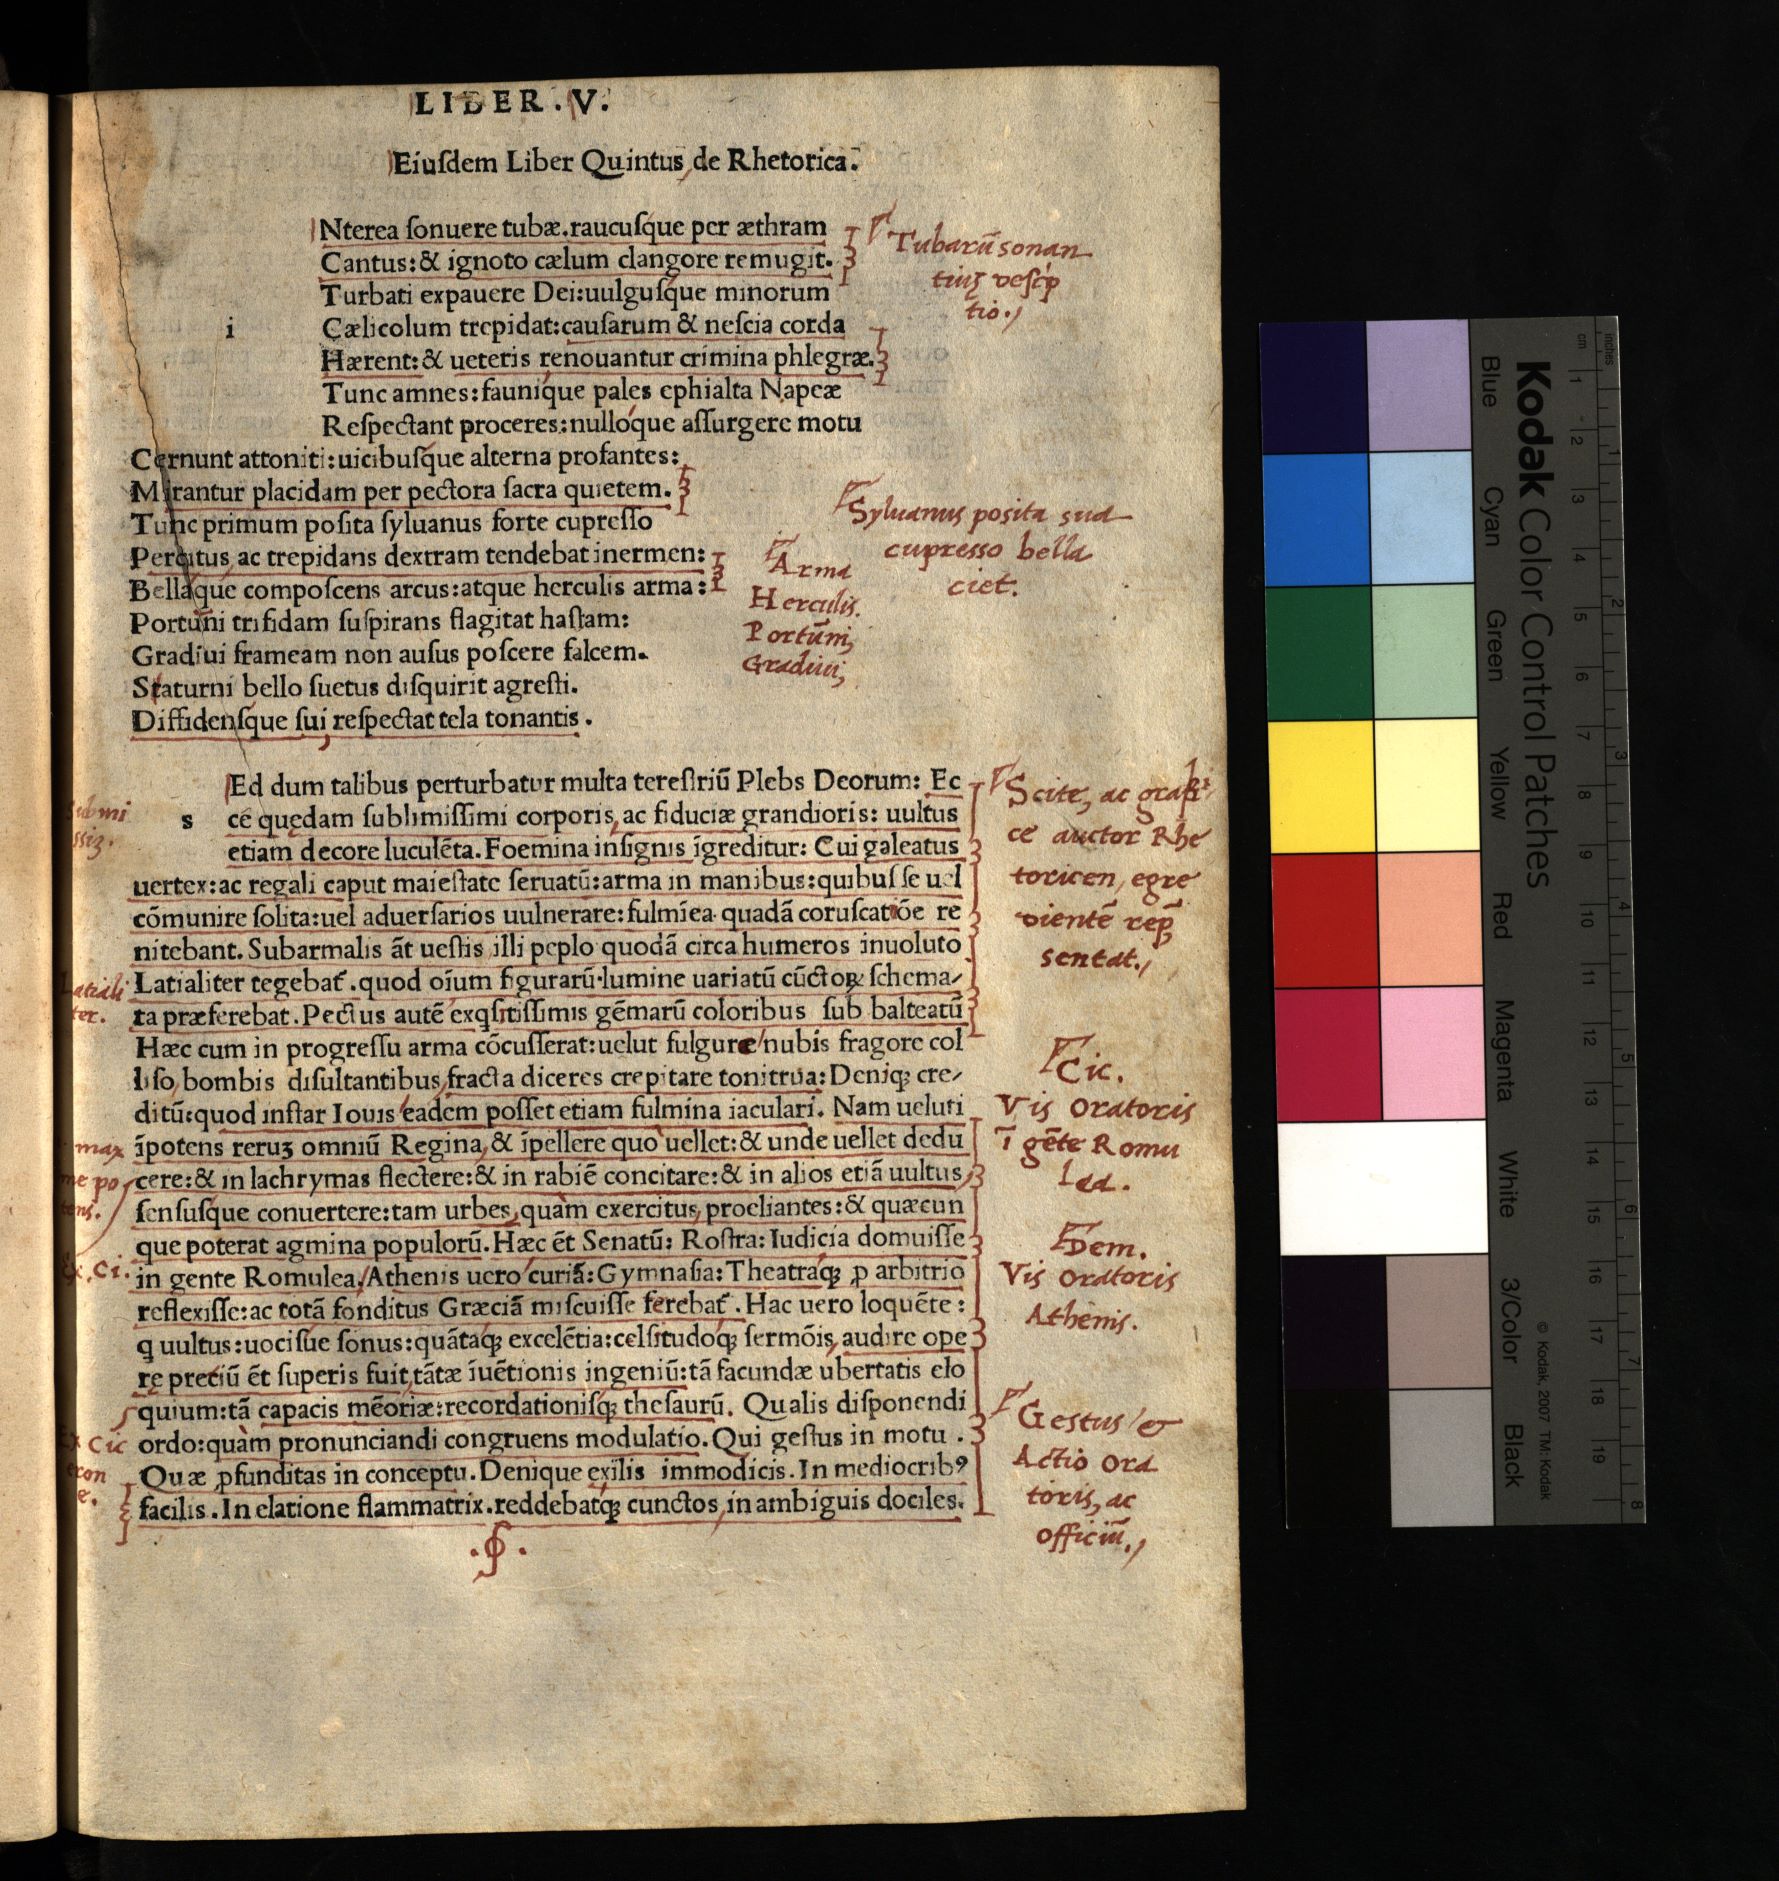 LIBER . V.
Eiuſdem Liber Quintus, de Rhetorica.
Nterea ſonuere tubæ.raucuſque per æthram
Cantus:& ignoto cælum clangore remugit.
Turbati expauere Dei:uulguſque minorum
i Cælicolum trepidat:cauſarum & neſcia corda
Hærent:& ueteris renouantur crimina phlegræ.
Tunc amnes:faunique pales ephialta Napeæ
Reſpectant proceres:nulloque aſſurgere motu
Cernunt attoniti:uicibuſque alterna profantes:
Mirantur placidam per pectora ſacra quietem.
Tunc primum poſita ſyluanus forte cupreſſo
Percitus, ac trepidans dextram tendebat inermen:
Bellaque compoſcens arcus:atque herculis arma:
Portuni trifidam ſuſpirans flagitat haſtam:
Gradiui frameam non auſus poſcere falcem.
Staturni bello ſuetus diſquirit agreſti.
Diffidenſque ſui, reſpectat tela tonantis.
Tubarũ sonan
tiũ deſcp
tio.,
Syluanus posita sua
cupresso bella
ciet.
Arma
Herculis.
Portũni,
Gradiui,
Ed dum talibus perturbatur multa tereſtriũ Plebs Deorum: Ec
s cę quędam ſublimiſſimi corporis, ac fiduciæ grandioris: uultus
etiam decore luculẽta. Foemina inſignis ĩgreditur: Cui galeatus
uertex:ac regali caput maieſtate ſeruatũ:arma in manibus:quibuſ ſe uel
cõmunire ſolita:uel aduerſarios uulnerare:fulmĩea quadã coruſcatiõe re
nitebant. Subarmalis ãt ueſtis illi peplo quodã circa humeros inuoluto
Latialiter tegebat̃.quod oĩum figurarũ lumine uariatũ cũctoꝝ ſchema⸗
ta præferebat. Pectus autẽ exqſitiſſimis gẽmarũ coloribus ſub balteatũ
Hæc cum in progreſſu arma cõcuſſerat:uelut fulguræ nubis fragore col
liſo, bombis diſultantibus, fracta diceres crepitare tonitrua: Deniqꝫ cre⸗
ditũ:quod inſtar Iouis eadem poſſet etiam fulmina iaculari. Nam ueluti
ĩpotens reruꝫ omniũ Regina, & ĩpellere quo uellet:& unde uellet dedu
cere:& in lachrymas flectere:& in rabiẽ concitare:& in alios etiã uultus,
ſenſuſque conuertere:tam urbes, quàm exercitus, proeliantes:& quæcun
que poterat agmina populorũ. Hæc ẽt Senatũ: Roſtra: Iudicia domuiſſe
in gente Romulea, Athenis uero curiã: Gymnaſia: Theatraqꝫ ꝓ arbitrio
reflexiſſe:ac totã fonditus Græciã miſcuiſſe ferebat̃. Hac uero loquẽte:
q uultus:uociſue ſonus:quãtaqꝫ excelẽtia:celſitudoqꝫ ſermõis, audire ope
rę pretiũ ẽt ſuperis fuit, tãtæ ĩuẽtionis ingeniũ:tã facundæ ubertatis elo
quium:tã capacis mẽoriæ:recordationiſqꝫ theſaurũ. Qualis diſponendi
ordo:quàm pronunciandi congruens modulatio. Qui geſtus in motu.
Quæ ꝓfunditas in conceptu. Denique exilis immodicis. In mediocribꝰ
facilis. In elatione flammatrix. reddebatqꝫ cunctos, in ambiguis dociles.
Scite, ac grafi
ce auctor Rhe
toricen, egre
dientẽ rep̃
sentat.,
Cic.
Vis Oratoris
ĩ gẽte Romu
lea.
Dem.
Vis Oratoris
Athenis.
Gestus, &
Actio Ora
toris, ac
officiũ.,
max
me po
tens.
Latiali
ter.
Ex. Ci.
Ex Cic
eron
e.
Kodak Color Control Patches
Blue Cyan Green Yellow Red Magenta White 3/Color Black
© Kodak, 2007 TM: Kodak
cm 1 2 3 4 5 6 7 8 9 10 11 12 13 14 15 16 17 18 19
inches 1 2 3 4 5 6 7 8